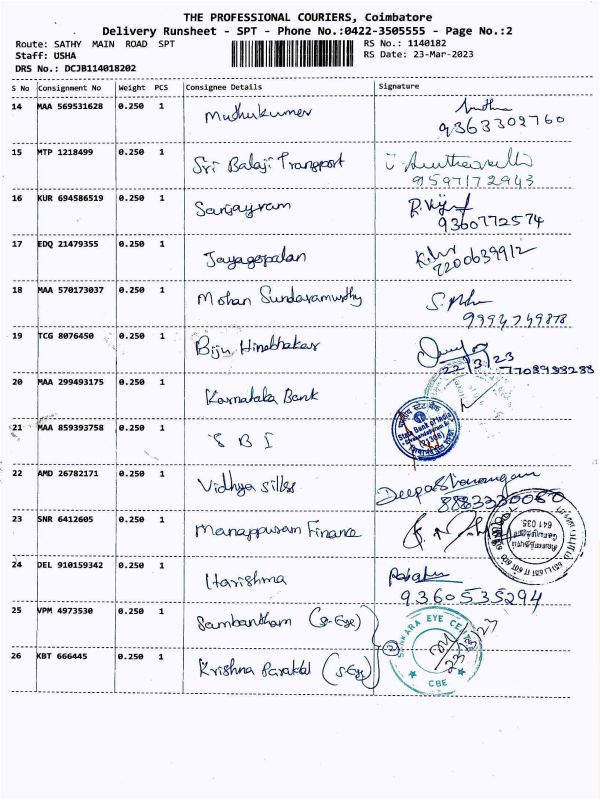 THE PROFESSIONAL COURIERS, Coimbatore
Delivery Runsheet - SPT - Phone No.:0422-3505555 - Page No.:2
Route: SATHY MAIN ROAD SPT
RS No.: 1140182
Staff: USHA
RS Date: 23-Mar-2023
DRS No.: DCJB114018202
S No Consignment No Weight PCS Consignee Details Signature
14 MAA 569531628 0.250 1 Muthukumar
9363302760
15 MTP 1218499 0.250 1 Sri Balaji Transport
9597172943
16 KUR 694586519 0.250 1 Sanjayram
9360772574
17 EDQ 21479355 0.250 1 Jayagopalan
7200639912
18 MAA 570173037 0.250 1 Mohan Sundaramurthy
9994749878
19 TCG 8076450 0.250 1 Biju
22/3/23
20 MAA 299493175 0.250 1 Karnataka Bank
21 MAA 859393758 0.250 1 S B I
State Bank of India
22 AMD 26782171 0.250 1 Vidhya silks
8883330060
23 SNR 6412605 0.250 1 Manappuram Finance
641 035
24 DEL 910159342 0.250 1 Harishma
9360535294
25 VPM 4973530 0.250 1 Sambantham (S-Eye)
SANKARA EYE CENTRE
CBE
26 KBT 666445 0.250 1 Krishna (S-Eye)